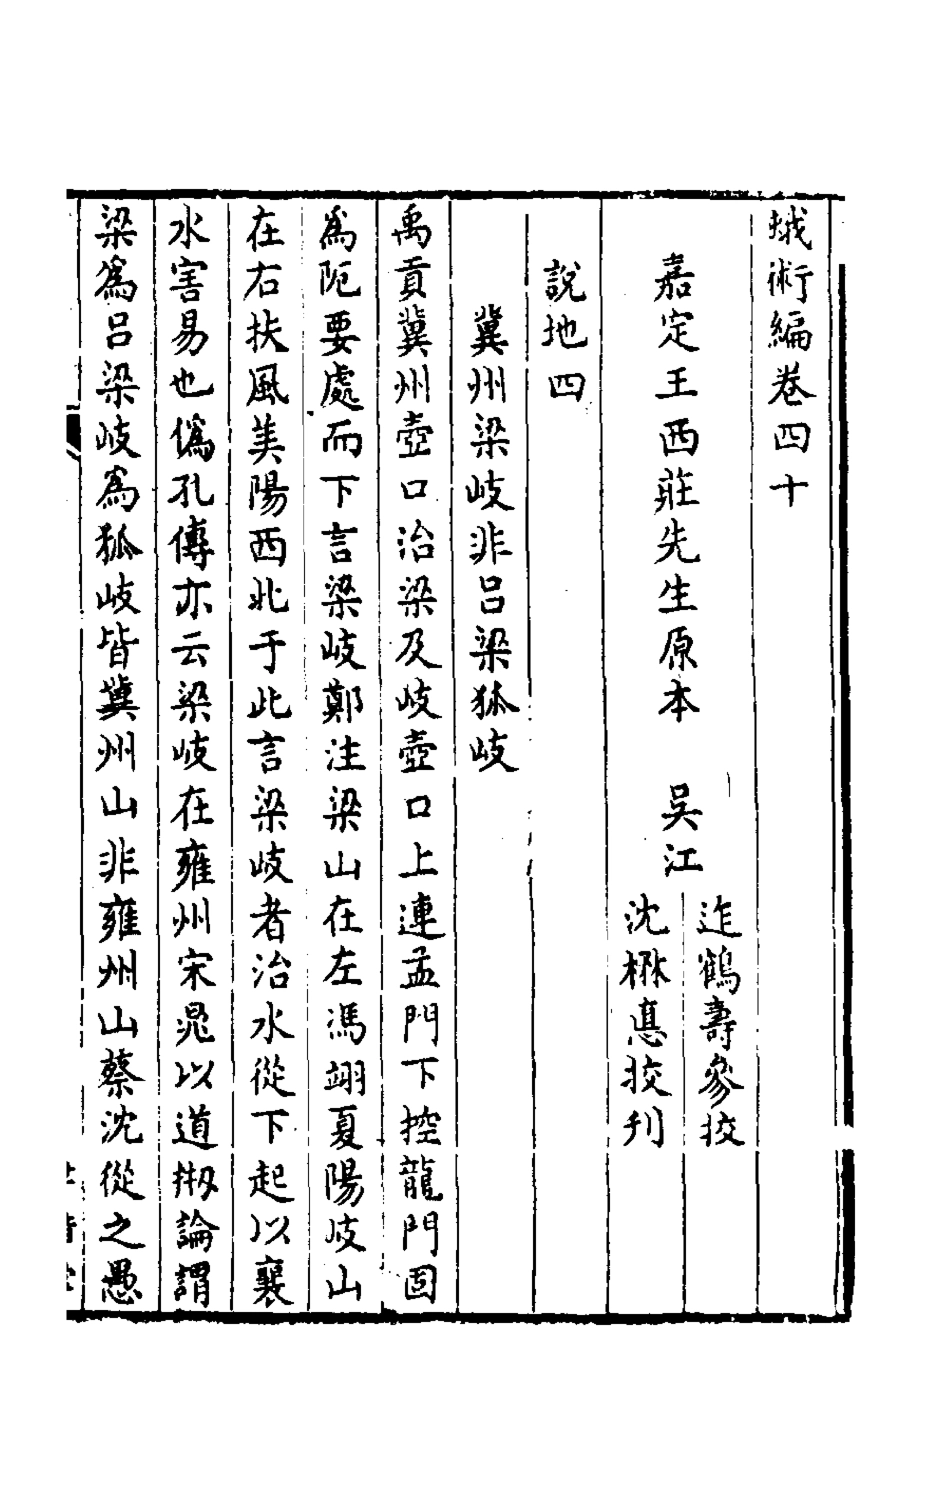 蛾術編卷四十
嘉定王西莊先生原本　吳江
迮鶴壽參挍
沈楙悳挍刊
說地四
冀州梁岐非呂梁狐岐
禹貢冀州壺口治梁及岐壺口上連孟門下控龍門固
爲阨要處而下言梁岐鄭注梁山在左馮翊夏陽岐山
在右扶風美陽西北于此言梁岐者治水從下起以襄
水害易也僞孔傳亦云梁岐在雍州宋晁以道揃論謂
梁爲呂梁岐爲狐岐皆冀州山非雍州山蔡沈從之愚